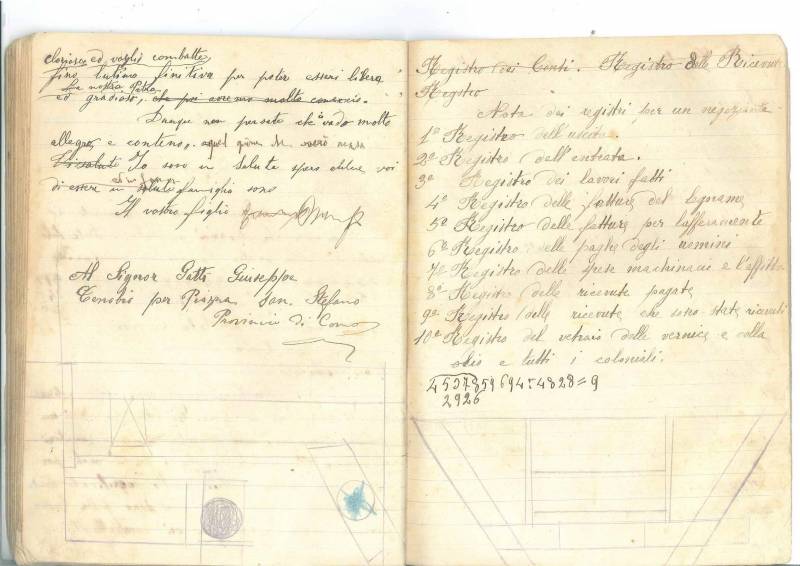 ed voglio combatte
fino lutimo finitiva per poter esseri libera
la nostra Patria
ed gradioso, che poi saremo molto
Dunque non pensate che vado molto
allegro e contento,
Io sono in Salute spero di voi
di essere in famiglia sono
Il vostro figlio
Al Signor Gatti Guiseppe
Cenobio per Piazza San. Stefano
Provincia di Como
Registro dei Conti. Registro delle Ricevute
Registro
Nota dei registri per un negoziante
1º Registro dell'uscita.
2º Registro dell'entrata.
3º Registro dei lavori fatti
4º Registro delle fatture del legname
5º Registro delle fatture per l'afferamente
6º Registro delle paghe degli uomini
7º Registro delle spese machinacie e l'affitto
8º Registro delle ricevute pagate
9º Registro delle ricevute che sono state ricevuti
10º Registro del vetraio delle vernice e colla
olio e tutti i coloniali.
2926